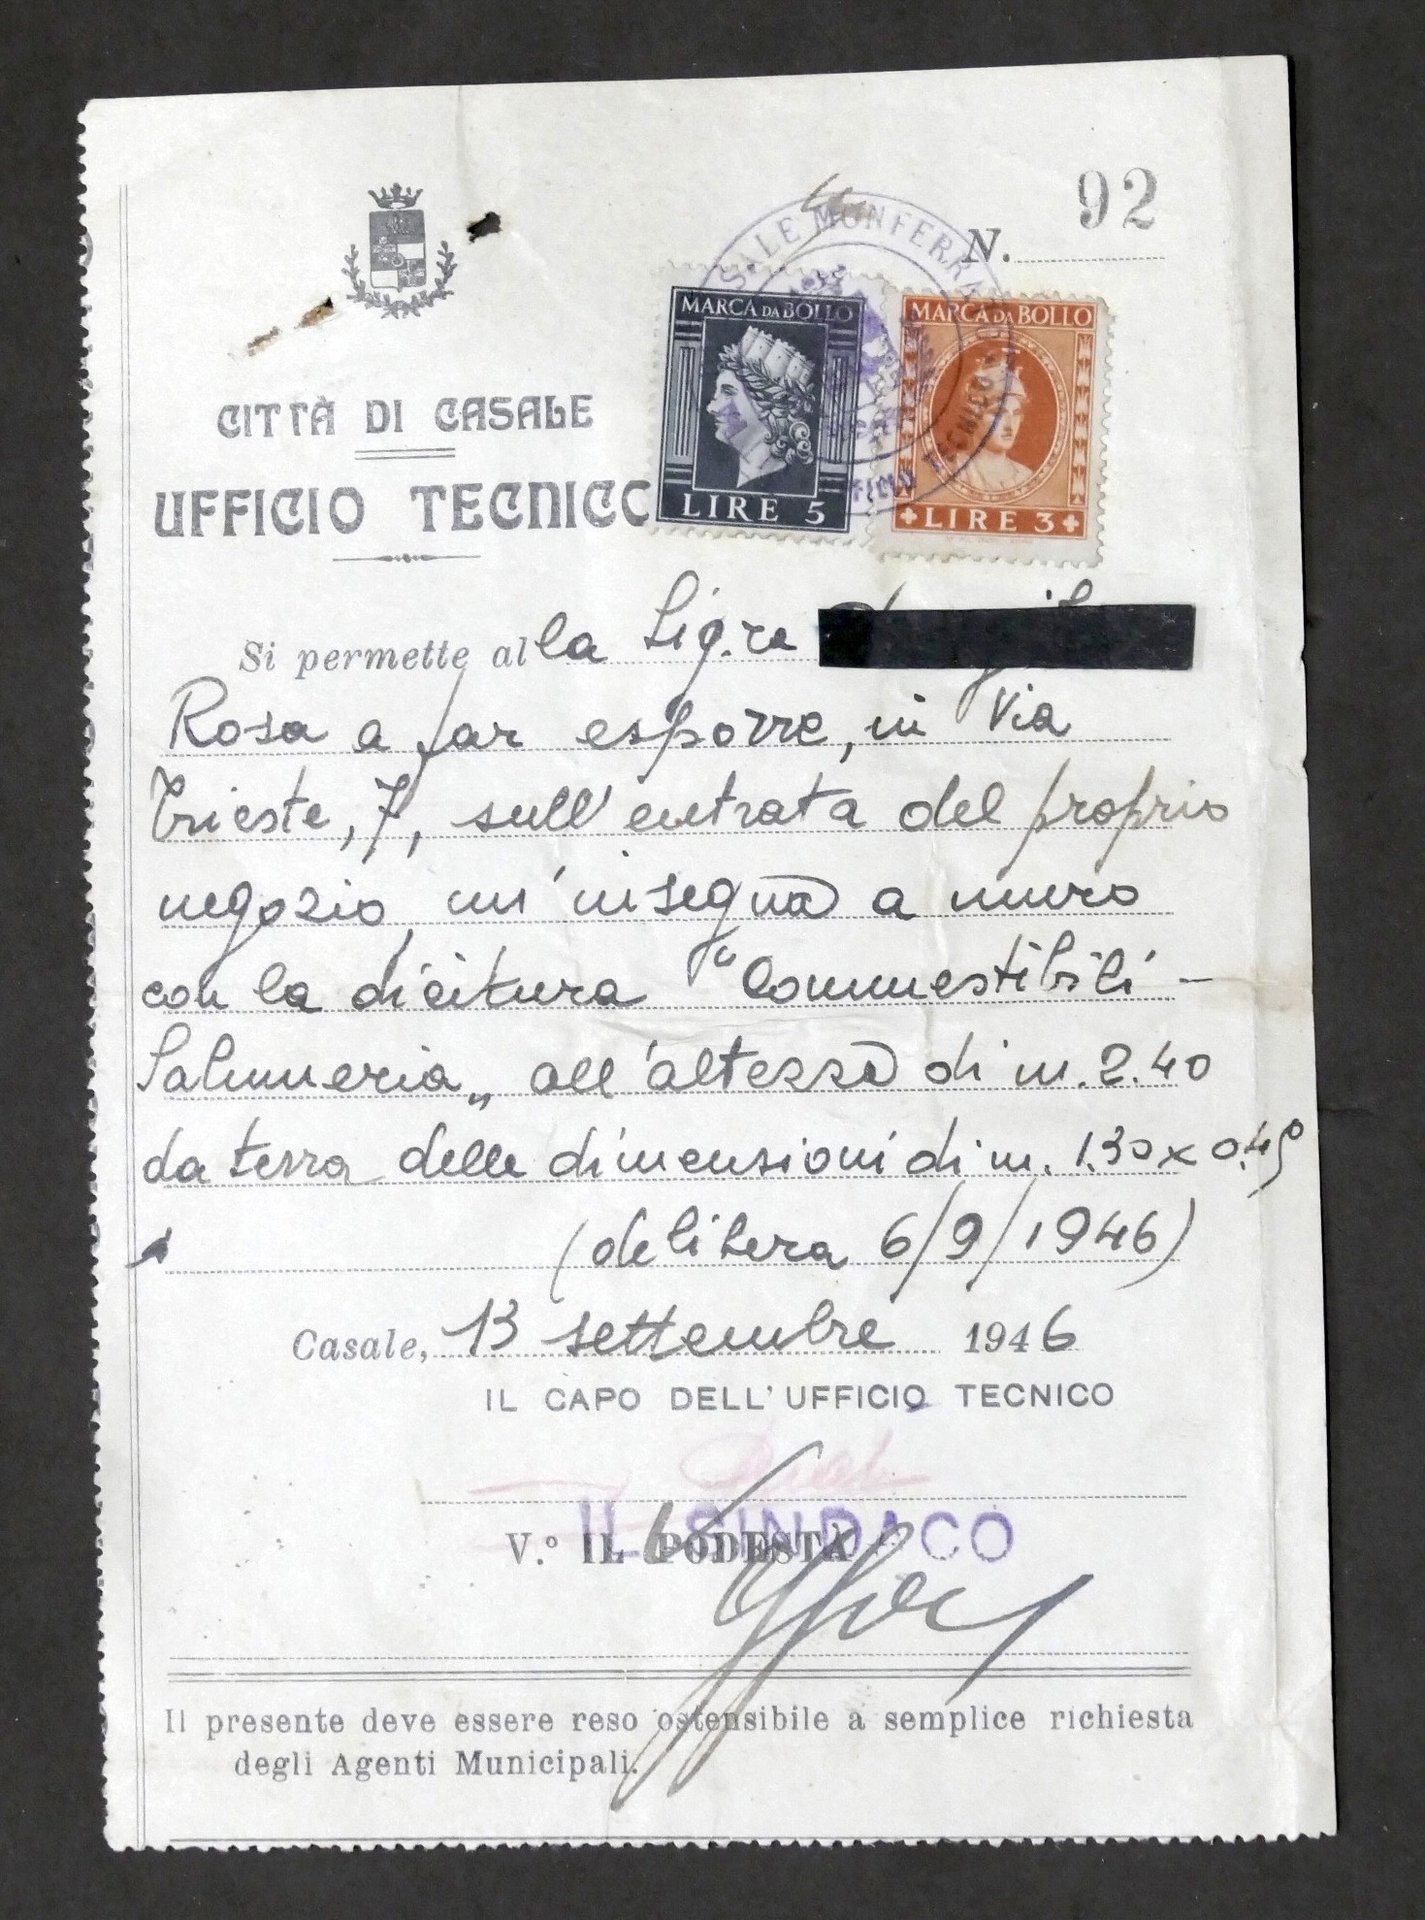 92
N.
CASALE MONFERRATO
UFFICIO TECNICO
MARCA DA BOLLO
LIRE 5
MARCA DA BOLLO
LIRE 3
CITTÀ DI CASALE
UFFICIO TECNICO
Si permette alla Sig.ra
Rosa a far esporre, in Via
Trieste, 7, sull'entrata del proprio
negozio, un'insegna a muro
con la dicitura "Commestibili -
Salumeria„ all'altezza di m. 2.40
da terra delle dimensioni di m. 1.30 x 0.45
(delibera 6/9/1946)
Casale, 13 settembre 1946
IL CAPO DELL'UFFICIO TECNICO
IL SINDACO
V.° IL PODESTÀ
Il presente deve essere reso ostensibile a semplice richiesta
degli Agenti Municipali.